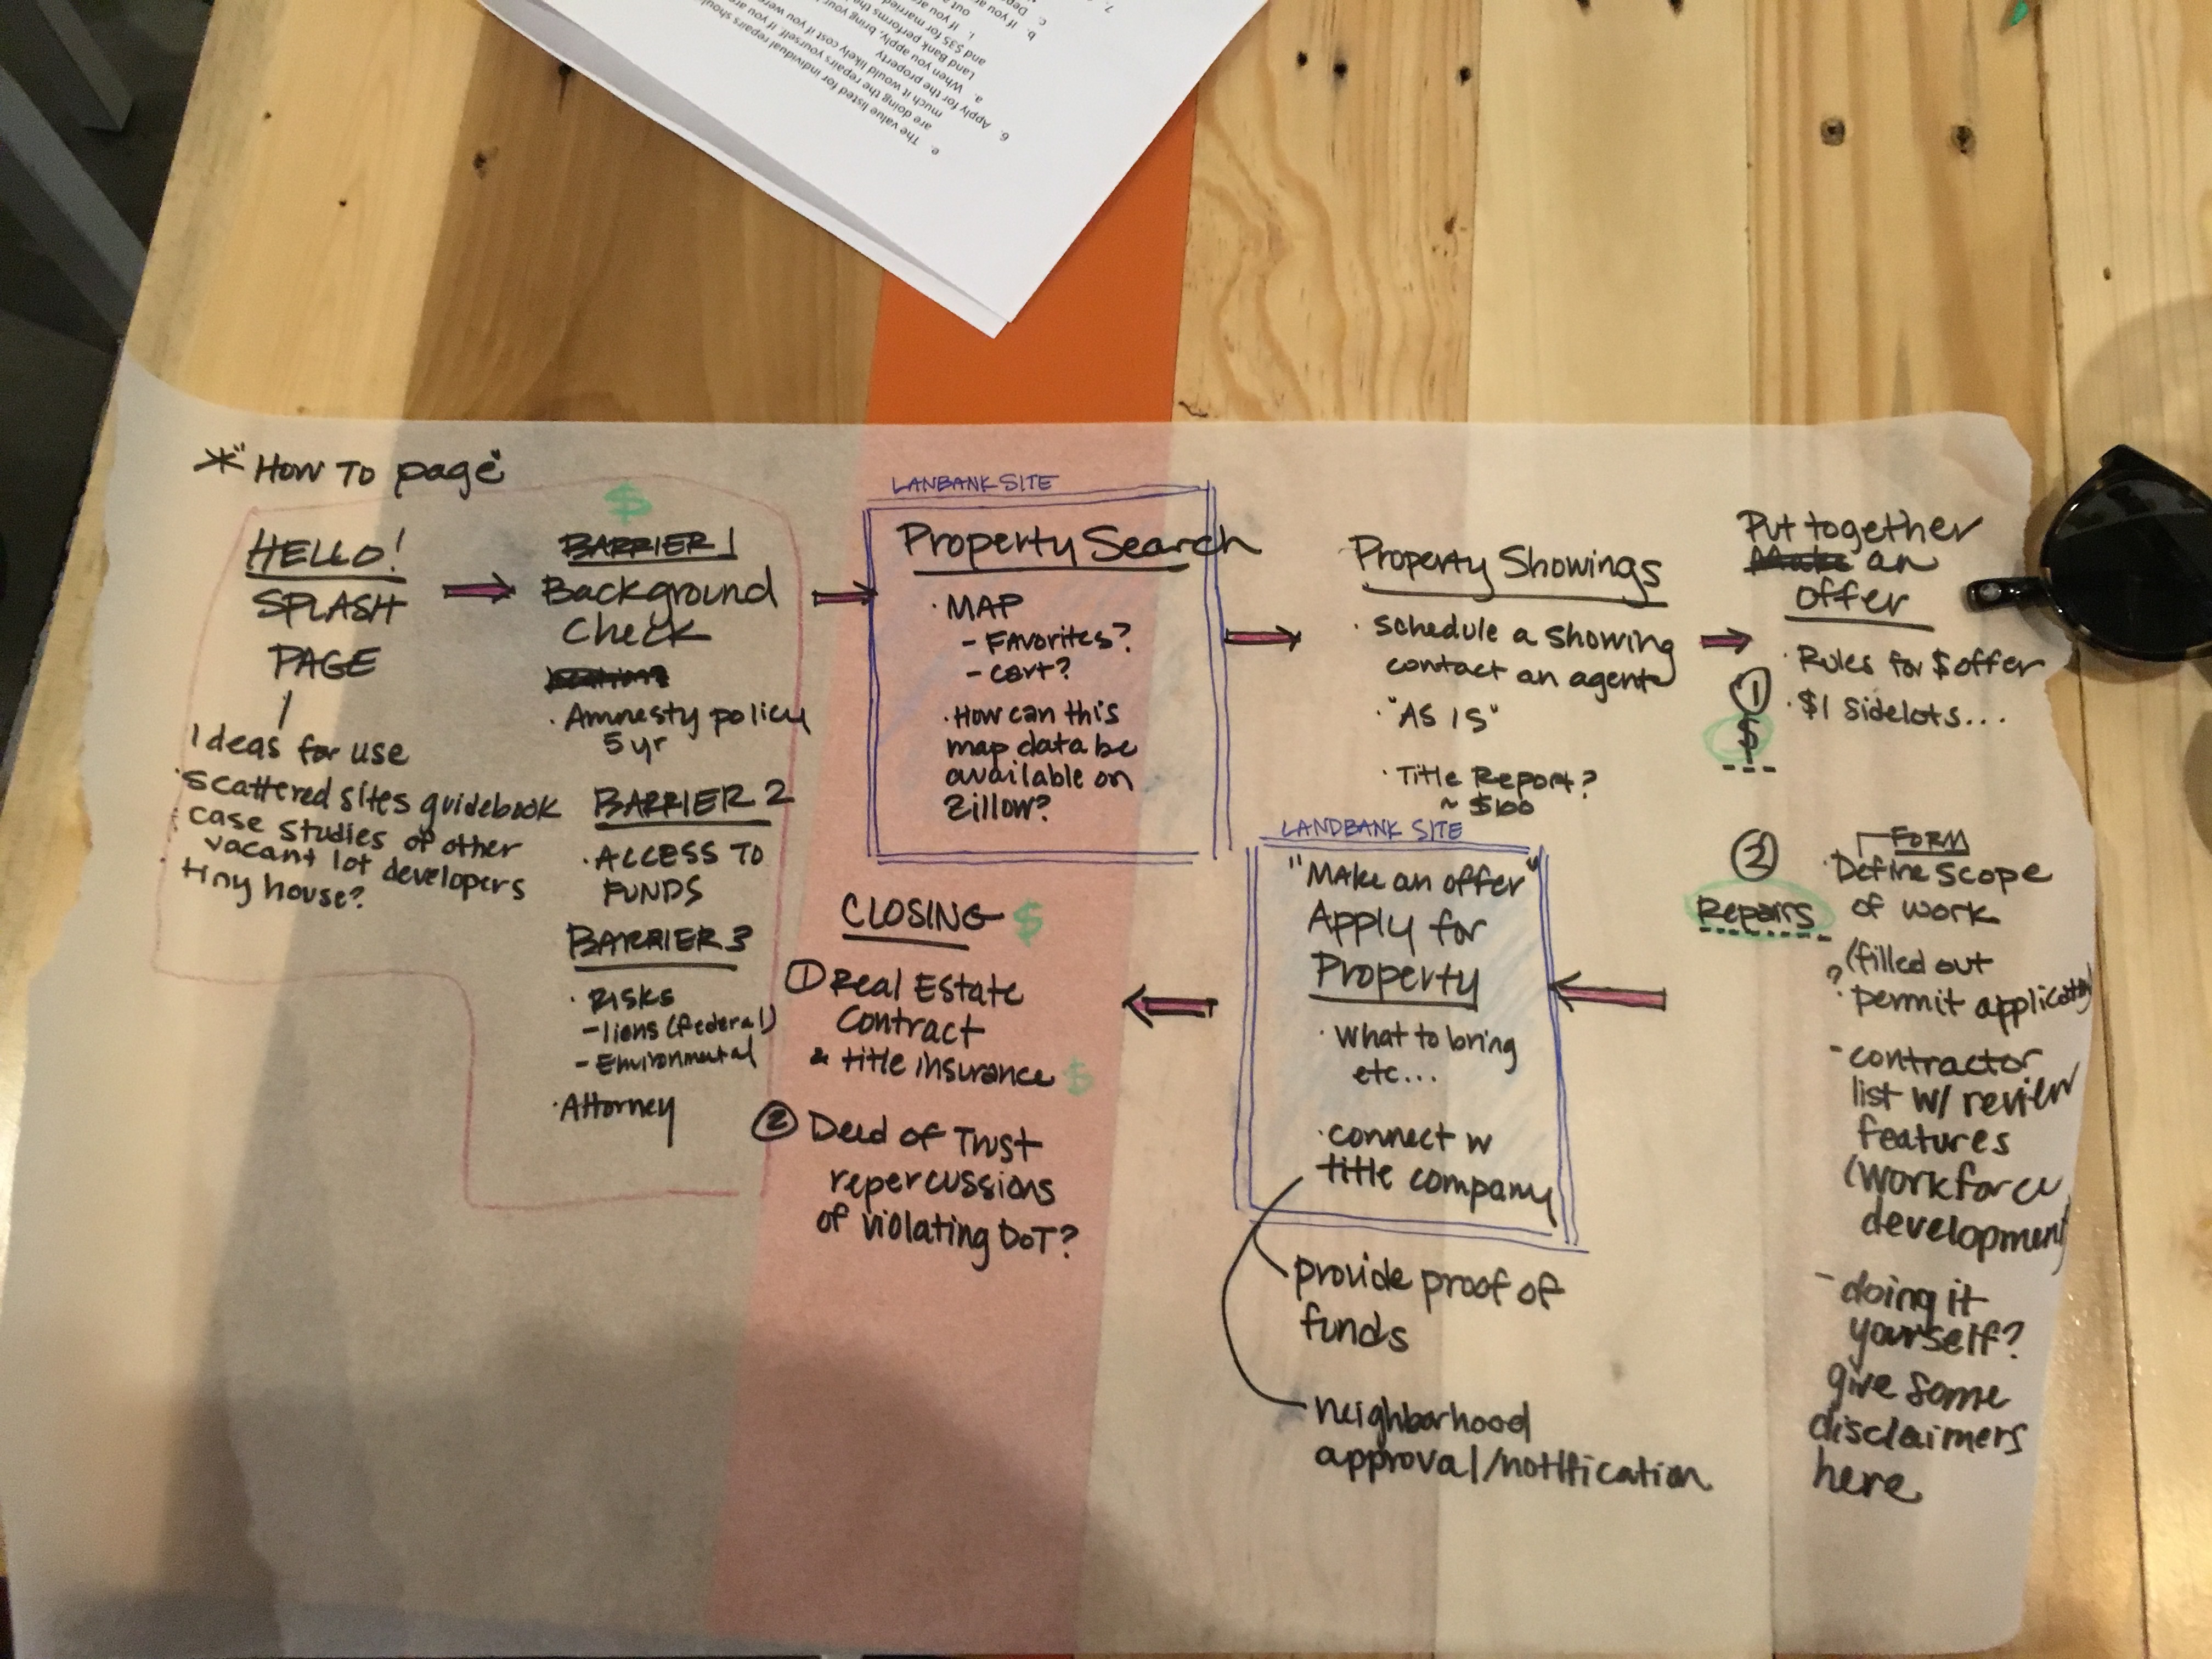 e. The value listed for individual repairs shou
are doing the repairs yourself if you are
much it would likely cost if you were
6. Apply for the property
a. When you apply, bring your
Land Bank performs th
and $35 for married
i. If you are
out
b. If you a
c. Dep
7.
* "HOW TO page"
HELLO!
SPLASH
PAGE
Ideas for use
· scattered sites guidebook
· case studies of other
vacant lot developers
· tiny house?
$
BARRIER 1
Background
Check
· Amnesty policy
5 yr
BARRIER 2
· ACCESS TO
FUNDS
BARRIER 3
· RISKS
- liens (federal)
- Environmental
· Attorney
LANBANK SITE
Property Search
· MAP
- FAVORITES?
- cart?
· How can this
map data be
available on
Zillow?
Property Showings
· schedule a showing
contact an agent
· "AS IS"
· Title Report?
~ $100
Put together
Make an
offer
· Rules for $ offer
· $1 Sidelots...
1
$
2
Repairs
FORM
· Define scope
of work
(filled out
? permit application)
- contractor
list w/ review
features
(workforce
development)
- doing it
yourself?
give some
disclaimers
here
LANDBANK SITE
"Make an offer"
Apply for
Property
· What to bring
etc...
· connect w
title company
provide proof of
funds
neighborhood
approval/notification
CLOSING $
1 Real Estate
Contract
& title insurance $
2 Deed of Trust
repercussions
of violating DoT?